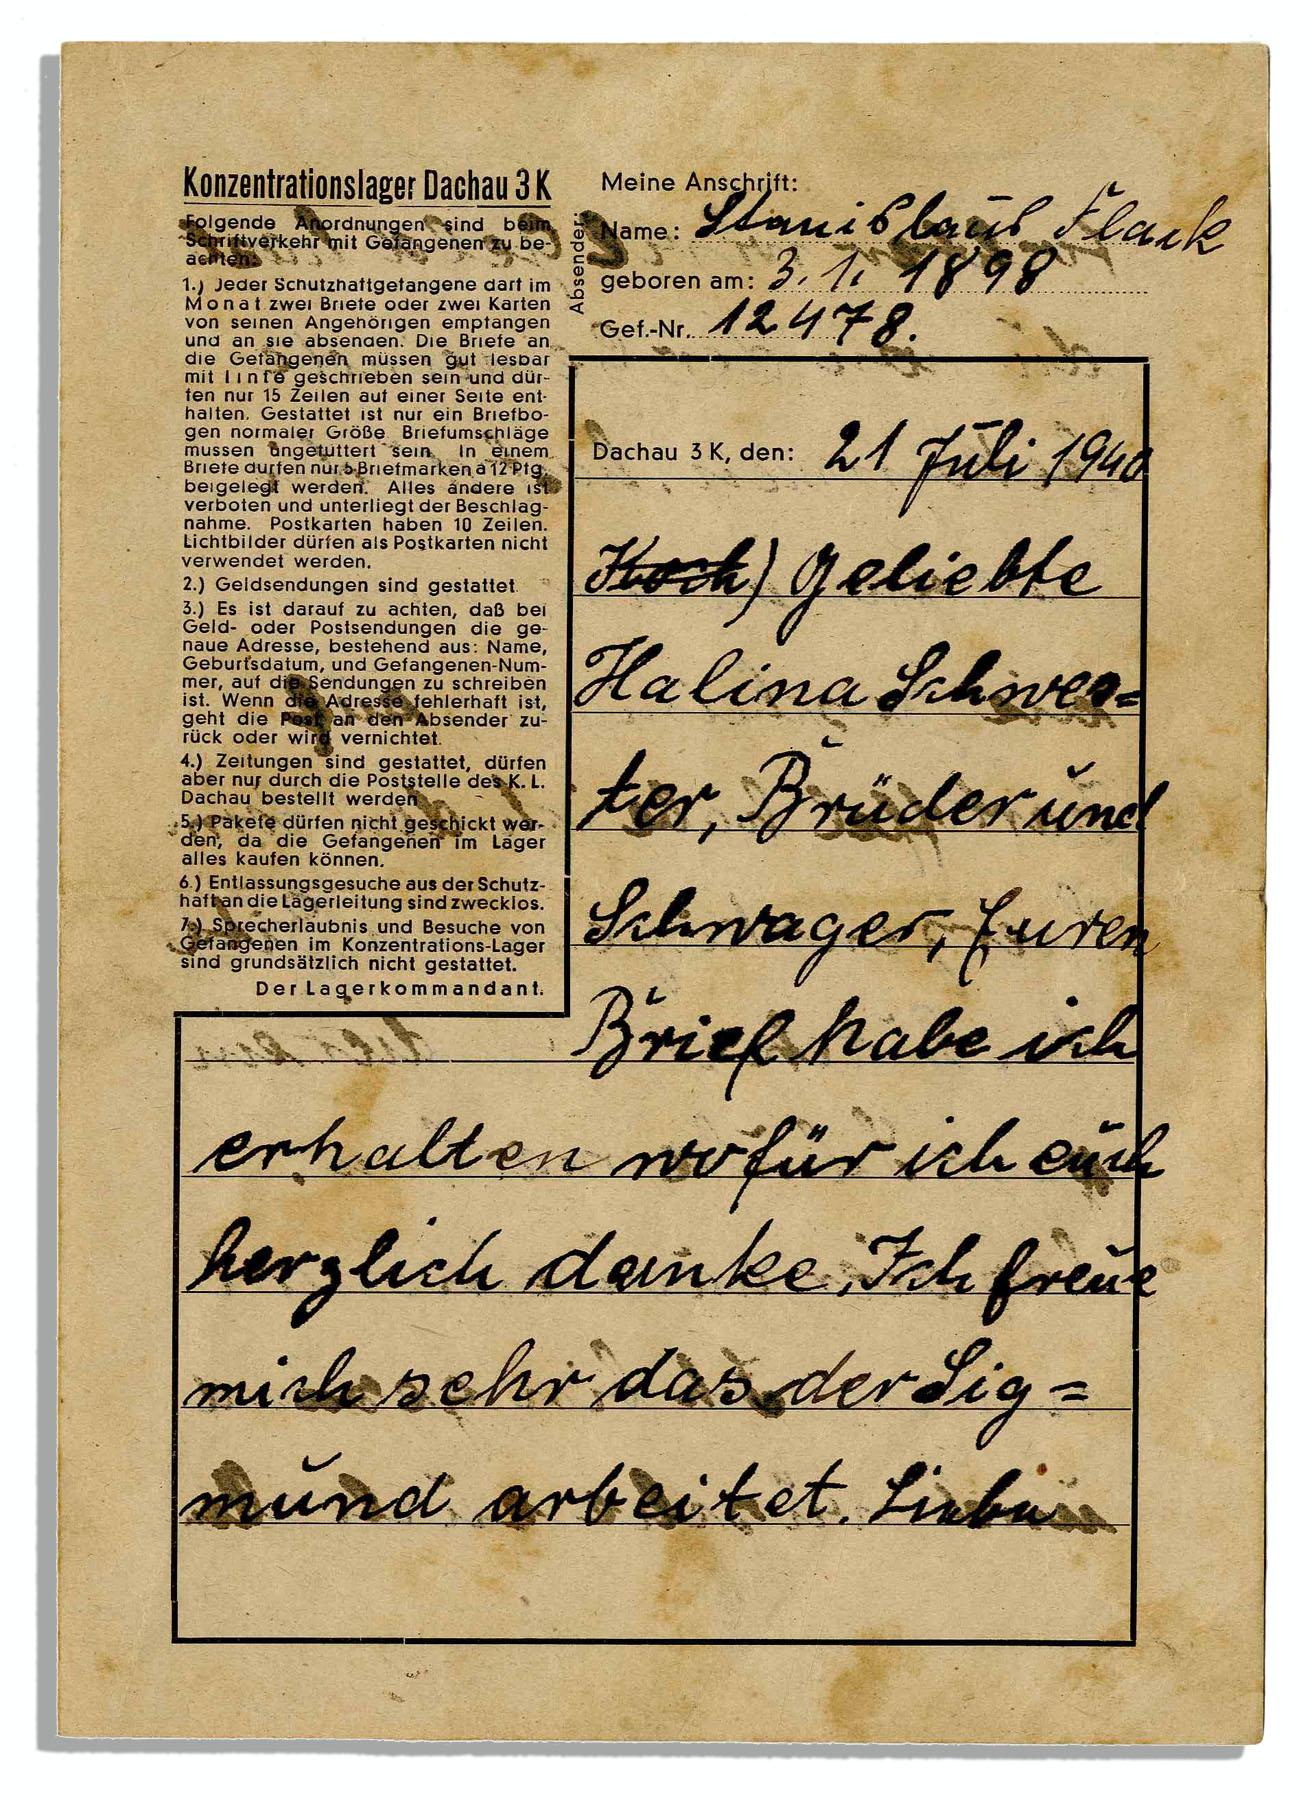 Konzentrationslager Dachau 3 K
Folgende Anordnungen sind beim
Schriftverkehr mit Gefangenen zu be-
achten:
1.) Jeder Schutzhaftgefangene darf im
Monat zwei Briefe oder zwei Karten
von seinen Angehörigen empfangen
und an sie absenden. Die Briefe an
die Gefangenen müssen gut lesbar
mit Tinte geschrieben sein und dür-
fen nur 15 Zeilen auf einer Seite ent-
halten. Gestattet ist nur ein Briefbo-
gen normaler Größe. Briefumschläge
müssen ungefüttert sein. In einem
Briefe dürfen nur 5 Briefmarken à 12 Pfg.
beigelegt werden. Alles andere ist
verboten und unterliegt der Beschlag-
nahme. Postkarten haben 10 Zeilen.
Lichtbilder dürfen als Postkarten nicht
verwendet werden.
2.) Geldsendungen sind gestattet.
3.) Es ist darauf zu achten, daß bei
Geld- oder Postsendungen die ge-
naue Adresse, bestehend aus: Name,
Geburtsdatum, und Gefangenen-Num-
mer, auf die Sendungen zu schreiben
ist. Wenn die Adresse fehlerhaft ist,
geht die Post an den Absender zu-
rück oder wird vernichtet.
4.) Zeitungen sind gestattet, dürfen
aber nur durch die Poststelle des K. L.
Dachau bestellt werden
5.) Pakete dürfen nicht geschickt wer-
den, da die Gefangenen im Lager
alles kaufen können.
6.) Entlassungsgesuche aus der Schutz-
haft an die Lagerleitung sind zwecklos.
7.) Sprecherlaubnis und Besuche von
Gefangenen im Konzentrations-Lager
sind grundsätzlich nicht gestattet.
Der Lagerkommandant.
Absender:
Meine Anschrift:
Name: Stanislaus Flack
geboren am: 3. 1. 1898
Gef.-Nr. 12478.
Dachau 3 K, den: 21 Juli 1940
Geliebte
Halina Schwes=
ter, Brüder und
Schwager, Euren
Brief habe ich
erhalten wofür ich euch
herzlich danke, Ich freue
mich sehr das der Sig=
mund arbeitet. Liebe